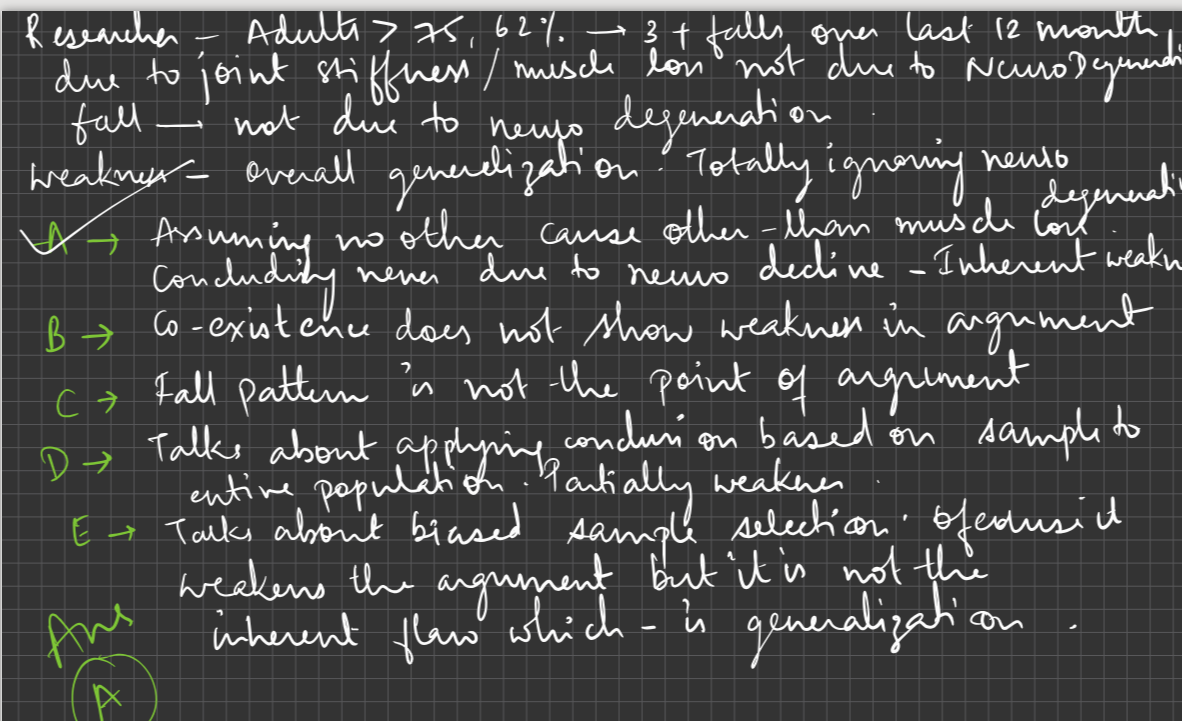 Researcher - Adults > 75, 62%. → 3+ falls over last 12 month,
due to joint stiffness / muscle loss not due to NeuroDegenerati
fall → not due to neuro degeneration.
Weakness - Overall generelization. Totally ignoring neuro
degenerati
A → Assuming no other cause other-than muscle loss.
Concluding never due to neuro decline - Inherent weakn
B → Co-existence does not show weakness in argument
C → Fall pattern is not the point of argument
D → Talks about applying conclusion based on sample to
entire population. Partially weakens.
E → Talks about biased sample selection. Ofcourse it
weakens the argument but it is not the
inherent flaw which - is generalization.
Ans
A